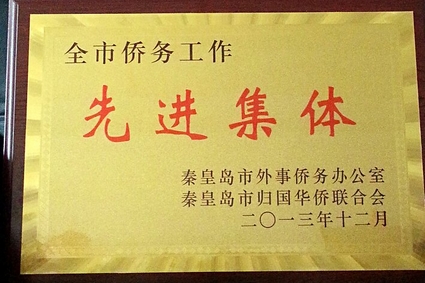 全市侨务工作
先进集体
秦皇岛市外事侨务办公室
秦皇岛市归国华侨联合会
二〇一三年十二月